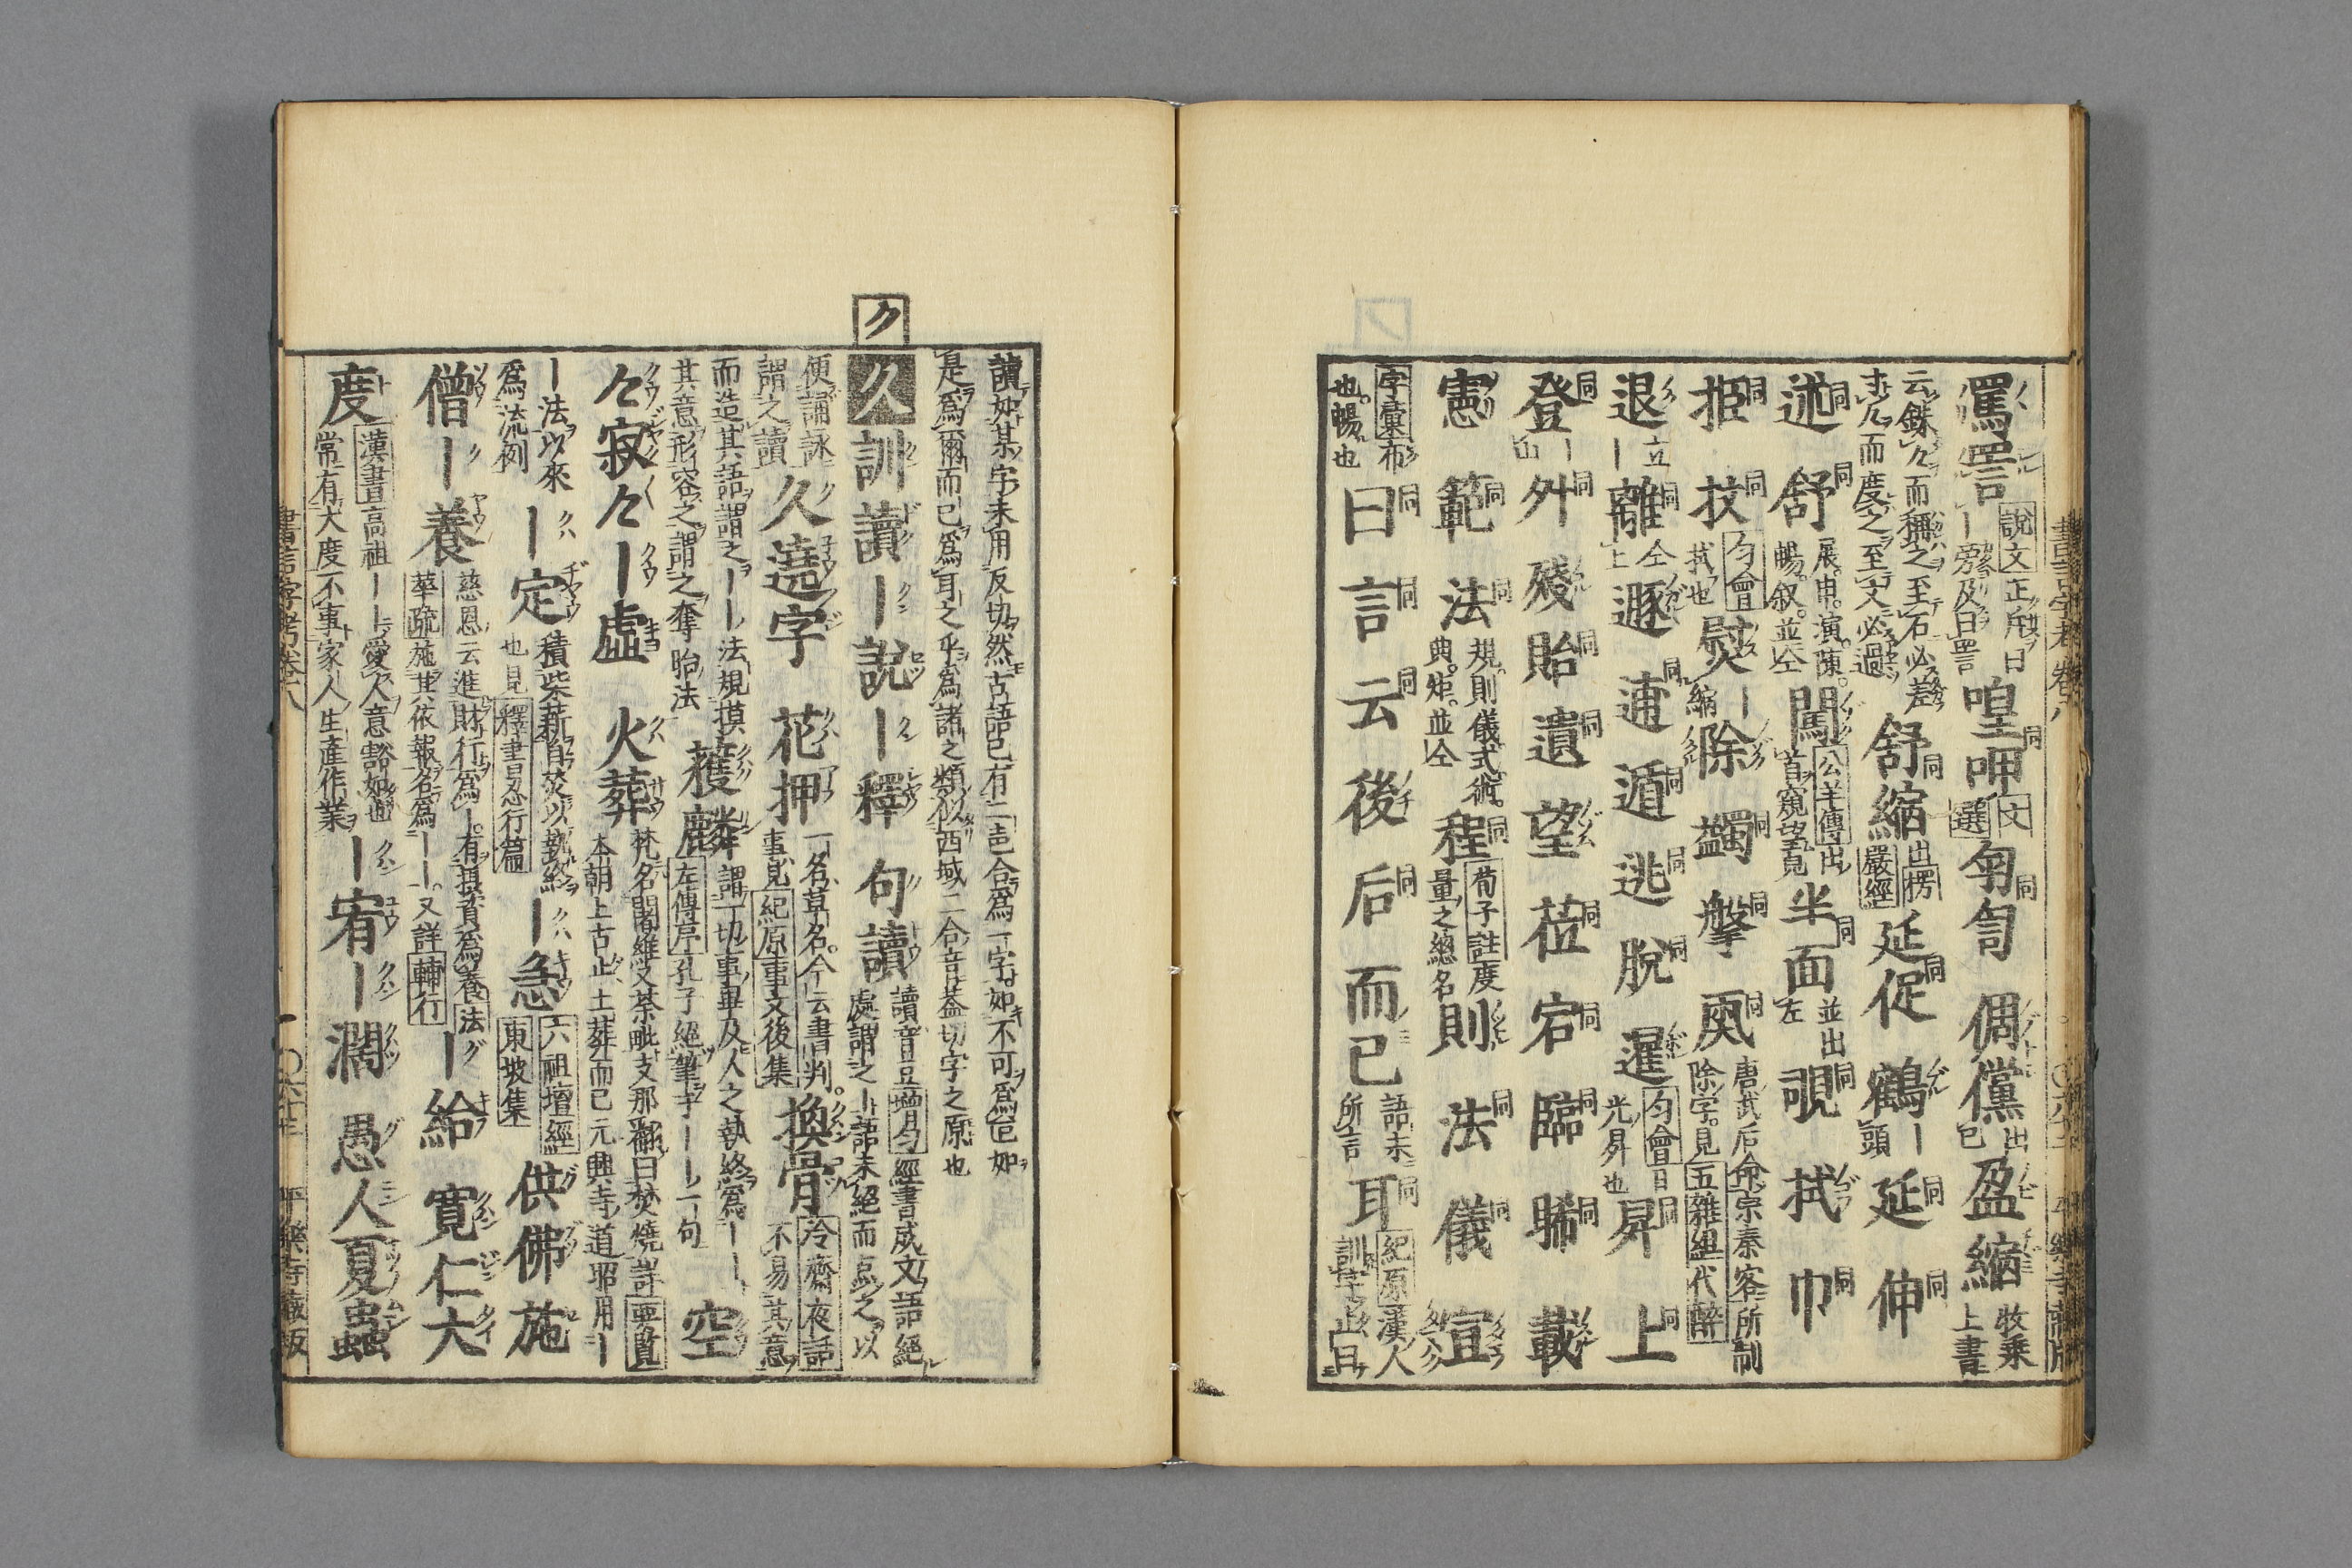 罵詈 說文正斥曰
ー旁及曰詈 喤呷同 文選 匒匌同 倜儻 出已 盈縮 牧乗上書
云銖〻而稱之至石必差
寸〻而度之至丈必過 舒縮同 出楞嚴經 延促同 鶴ー 頭 延同 伸同
述同 舒同 展。申。演。陳。
暢。叙。並仝 闖 公羊傳出
首窺望皃 半面同 並出左 覗同 拭 巾同
挋同 抆同 匀會
拭也 熨ー 縮 除 蠲同 搫同 㢞同 唐武后命宗秦客所制
除字。見五雜組代醉
退ー 立 離同 仝上 遯 逋同 遁同 逃同 脫同 暹 匀會日光昇也 昇同 上同
登同 ー山 外同 殘 貽同 遺同 望 莅同 宕同 臨同 睎同 載
憲 範同 法同 規。則儀式術。
典。矩。並仝 程同 荀子註度
量之總名 則 法同 儀同 宜
字彙布
也。暢也 曰同 言同 云同 後 后同 而已 語未
所言 耳同 紀原漢人
訓字止曰
讀如某字未用反切然古語已有二邑合爲一字如不可爲叵如
是爲爾而已爲耳之乎爲諸之類似西域二合音蓋切字之原也
ク
久 訓讀 ー說 ー釋 句讀 讀音豆增匀經書成文語絕
處謂之ー語未絕而点之以
便誦詠
謂之讀 久遶字 花押 一名草名。今云書判。
事見紀原事文後集 換骨 冷齋夜話
不易其意
而造其語謂之ーー法規摸
其意形容之謂之奪胎法 獲麟 謂一切事畢及人之執終爲ーー
左傳序孔子絕筆于ーー一句 空
〻寂〻 ー虛 火葬 梵名闍維又荼毗支那翻曰焚燒詳要覧
本朝上古止土葬而已元興寺道昭用ー
ー法以來
爲流例 ー定 積柴薪自焚以執終
也見釋書忍行篇 ー急 六祖壇經
東坡集 供佛施
僧ー 養 慈恩云進財行爲ー。有摂資爲養法
華疏施其依報名爲ーー。又詳輔行 ー給 寬仁大
度 漢書高祖ーー愛人意豁如也
常有大度不事家人生產作業 ー宥 ー濶 愚人夏蟲